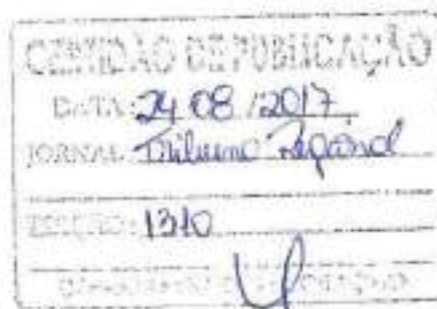 CERTIDÃO DE PUBLICAÇÃO
DATA: 24 08 /2017
JORNAL: Tribuna Regional
EDIÇÃO: 1310